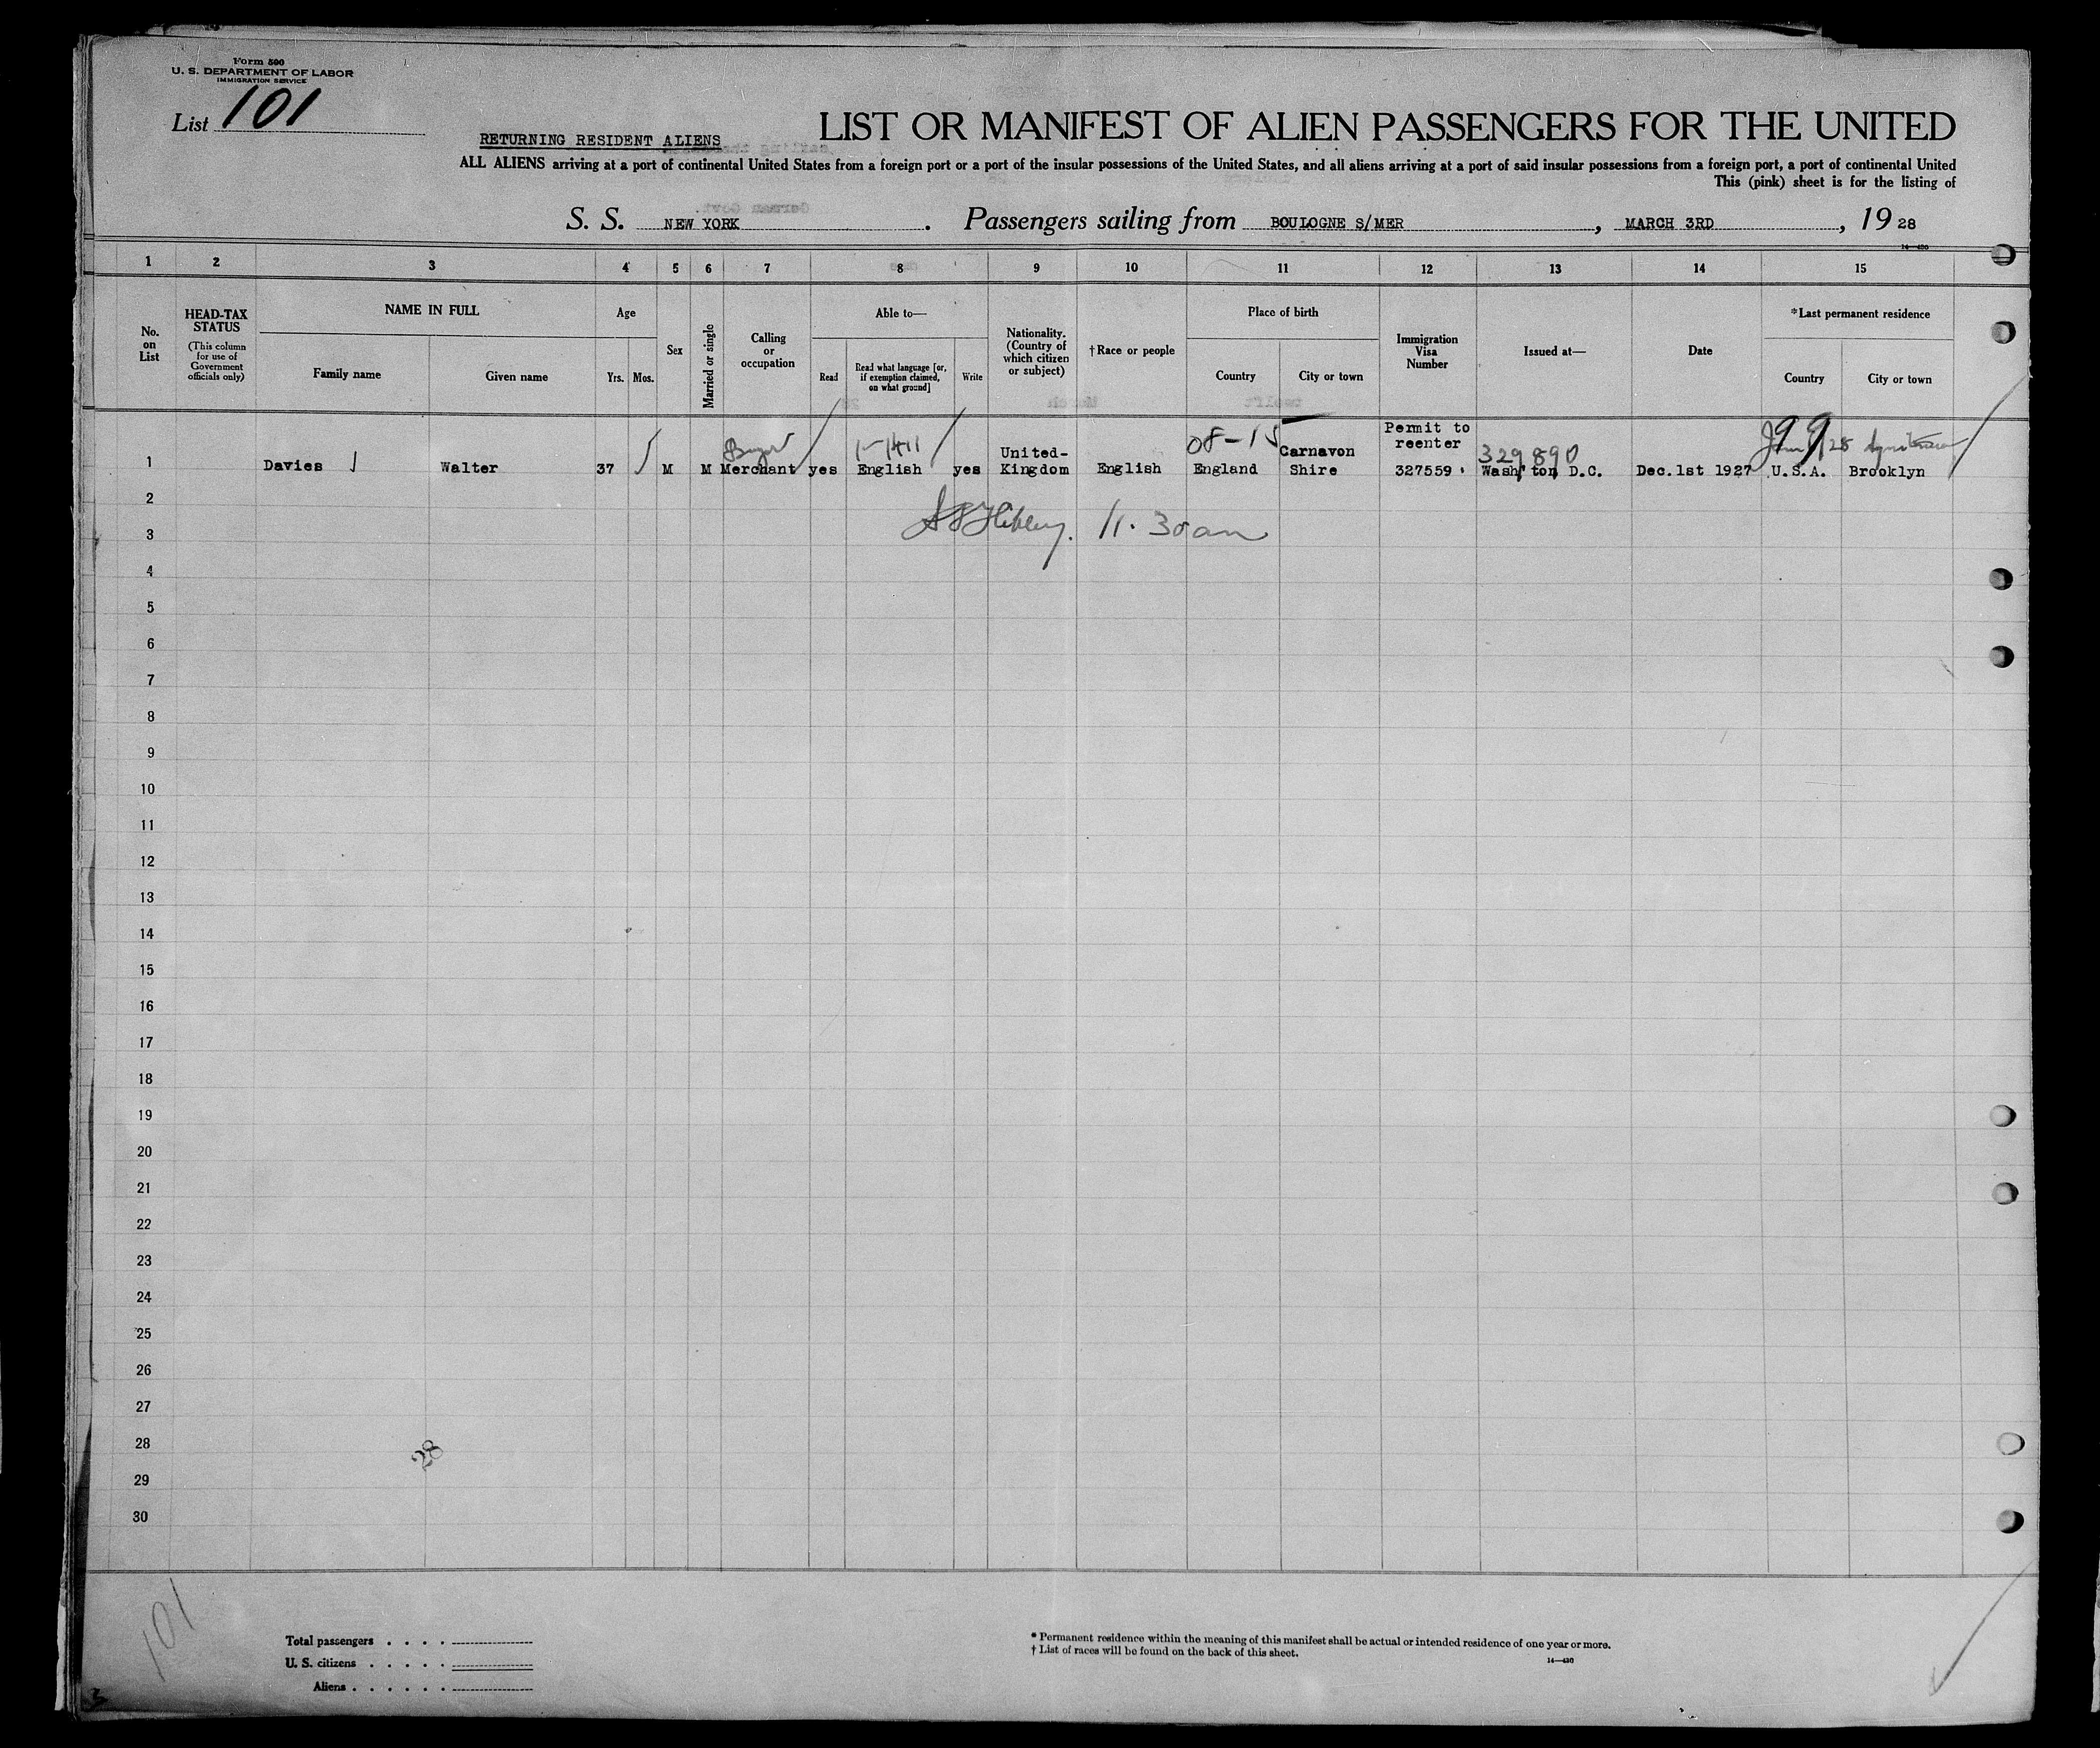 Form 500
U. S. DEPARTMENT OF LABOR
IMMIGRATION SERVICE
List 101
RETURNING RESIDENT ALIENS
LIST OR MANIFEST OF ALIEN PASSENGERS FOR THE UNITED
ALL ALIENS arriving at a port of continental United States from a foreign port or a port of the insular possessions of the United States, and all aliens arriving at a port of said insular possessions from a foreign port, a port of continental United
This (pink) sheet is for the listing of
S. S. NEW YORK. Passengers sailing from BOULOGNE S/MER, MARCH 3RD, 1928
14—430
1 2 3 4 5 6 7 8 9 10 11 12 13 14 15
No. on List
HEAD-TAX STATUS
(This column for use of Government officials only)
NAME IN FULL
Family name
Given name
Age
Yrs.
Mos.
Sex
Married or single
Calling or occupation
Able to—
Read
Read what language [or, if exemption claimed, on what ground]
Write
Nationality. (Country of which citizen or subject)
†Race or people
Place of birth
Country
City or town
Immigration Visa Number
Issued at—
Date
*Last permanent residence
Country
City or town
08-15
Permit to reenter
329890
99
1 Davies Walter 37 M M Merchant yes English yes United-Kingdom English England Carnavon Shire 327559 Wash'ton D.C. Dec.1st 1927 U.S.A. Brooklyn
2
11.30am
3
4
5
6
7
8
9
10
11
12
13
14
15
16
17
18
19
20
21
22
23
24
25
26
27
28
28
29
30
101
Total passengers . . . .
U. S. citizens . . . . .
Aliens . . . . . .
* Permanent residence within the meaning of this manifest shall be actual or intended residence of one year or more.
† List of races will be found on the back of this sheet.
14—430